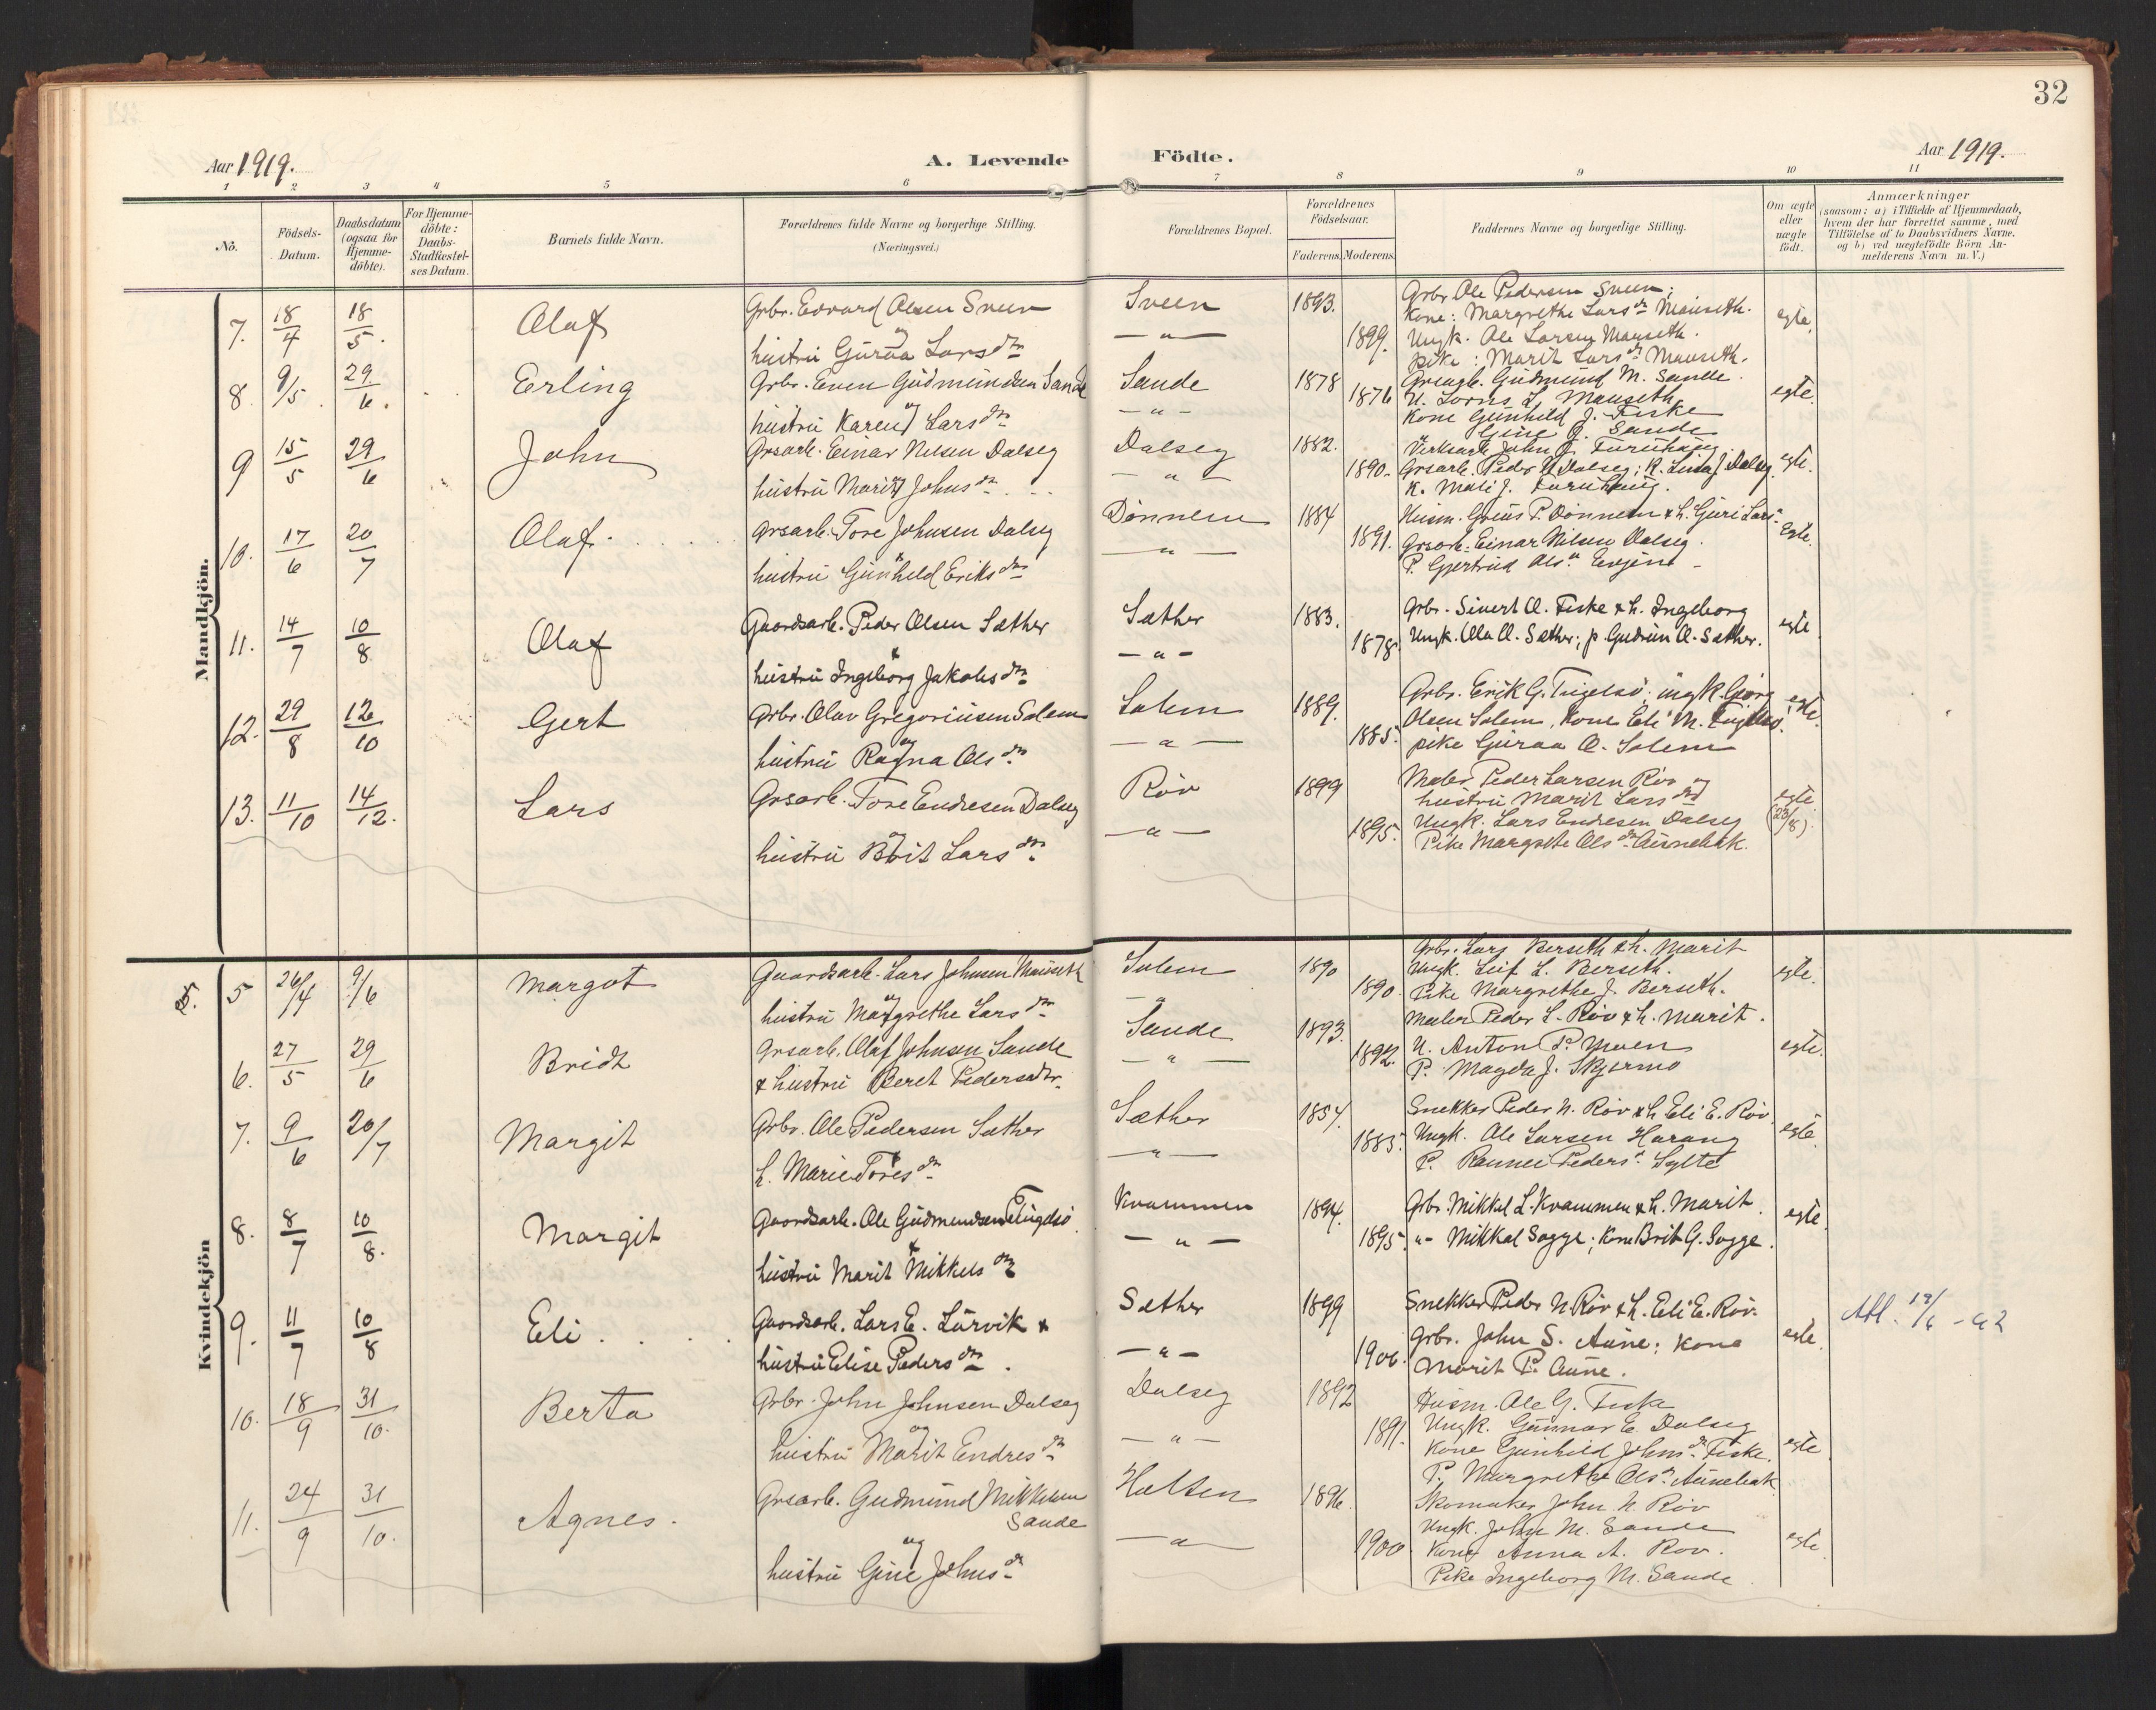 32
Aar 1919.
A. Levende Födte.
Aar 1919.
1 2 3 4 5 6 7 8 9 10 11
No.
Födsels-Datum.
Daabsdatum (ogsaa for Hjemme-döbte).
For Hjemme-döbte: Daabs-Stadfæstel-ses Datum.
Barnets fulde Navn.
Forældrenes fulde Navne og borgerlige Stilling. (Næringsvei.)
Forældrenes Bopæl.
Forældrenes Födselsaar.
Faderens. Moderens.
Faddernes Navne og borgerlige Stilling.
Om ægte eller uægte födt.
Anmærkninger
(saasom: a) i Tilfælde af Hjemmedaab, hvem der har forrettet samme, med Tilföielse af to Daabsvidners Navne, og b) ved uægtefödte Börn An-melderens Navn m. V.)
Mandkjön.
7. 18/4 18/5. Olaf
Grbr. Edvard Olsen Sveen og
hustru Gurua Larsdtr
Sveen
— " —
1893.
1899.
Grbr Ole Pedersen Sveen;
Kone: Margrethe Larsdtr Mauseth.
Ungk. Ole Larsen Mauseth.
pike: Marit Larsdtr Mauseth.
egte.
8. 9/5. 29/6. Erling
Grbr. Even Gudmundsen Sande
og
hustru Karen Larsdtr
Sande
— " —
1878
1876
Grsagb. Gudmund M. Sande.
U. Lornts L. Mauseth
Kone Gunhild J. Fiske
Gine J. Sande
egte.
9 15/5 29/6 John
Grsarb. Einar Nilsen Dalseg
og
hustru Marit Johnsdtr
Dalseg
— " —
1882.
1890.
Verksarb John J. Furuhaug
Grsarb. Peder N Dalseg; K. Lina J. Dalseg
K. Mali J. Furuhaug.
egte.
10. 17/6 20/7 Olaf.
Grsarb. Tore Johnsen Dalseg
&
hustru Gunhild Eriksdtr
Dønnem
— " —
1884
1891.
Husm. Greius P. Dønnem & h. Guri Larsdtr
Grsarb. Einar Nilsen Dalseg.
P. Gjertrud Olsdtr Engene
Egte.
11. 14/7 10/8 Olaf
Gaardsarb. Peder Olsen Sæther
&
hustru Ingeborg Jakobsdtr
Sæther
— " —
1883.
1878.
Grbr. Sivert O. Fiske & h. Ingeborg
Ungk. Ola O. Sæther; p. Gudrun O. Sæther.
egte
12. 29/8 12/10 Gert
Grbr. Olav Gregoriusen Solem
og
hustru Ragna Olsdtr
Solem
— " —
1889.
1885.
Grbr. Erik G. Fugelsø; ungk. Georg
Olsen Solem, Kone Eli M. Fugelsø;
pike Guraa O. Solem
egte.
13. 11/10 14/12. Lars
Grsarb. Tore Endresen Dalseg
og
hustru Brit Larsdtr
Røv
— " —
1899
1895.
Maler Peder Larsen Røv og
hustru Marit Larsdtr
Ungk. Lars Endresen Dalseg
Pike Margrethe Olsdtr Aunebak.
egte
(23/8).
Kvindekjön
5. 5 26/4 9/6 Margot
Gaardsarb. Lars Johnsen Mauseth
og
hustru Margrethe Larsdtr
Solem
— " —
1890
1890
Grbr. Lars Berseth & h. Marit
Ungk. Leif L. Berseth.
Pike Margrethe J. Berseth.
egte.
6. 27/5 29/6 Bridt
Grsarb. Olaf Johnsen Sande
& hustru Beret Pedersdtr.
Sande
— " —
1893.
1892.
Maler Peder L. Røv & h. Marit.
U. Anton P. Moen
P. Magda J. Skjermo
egte.
7. 9/6 20/7 Margit
Grbr. Ole Pedersen Sæther
&
h. Marie Toresdtr
Sæther
— " —
1854.
1885.
Snekker Peder N. Røv & h Eli E. Røv.
Ungk. Ole Larsen Harang
P. Rannei Pedersdtr Sylte
egte.
8. 8/7 10/8. Margit
Gaardsarb. Ole Gudmundsen Fugelsø
&
hustru Marit Mikkelsdtr
Kvammen
— " —
1894.
1895.
Grbr. Mikkel L. Kvammen & h. Marit.
"- Mikkal Sogge; Kone Brit G. Sogge.
egte.
9. 11/7 10/8 Eli
Gaardsarb. Lars E. Lurvik &
hustru Elise Pedersdtr.
Sæther
— " —
1899
1900.
Snekker Peder N. Røv & h. Eli E. Røv.
Grbr. John S. Aune; kone
Marit P. Aune.
egte.
10. 18/9 31/10. Berta
Grbr. John Johnsen Dalseg
og
hustru Marit Endresdtr
Dalseg
— " —
1892
1891.
Husm. Ole G. Fiske
Ungk. Gunnar E. Dalseg
Kone Gunhild Johnsdtr Fiske.
P. Margrethe Olsdtr Aunebak
egte
11. 24/9 31/10. Agnes.
Grsarb. Gudmund Mikkelsen
Sande
og
hustru Gine Johnsdtr
Halten
— " —
1896.
1900
Skomaker John N. Røv
Ungk. John M. Sande
Kone Anna A. Røv.
Pike Ingeborg M. Sande
egte.